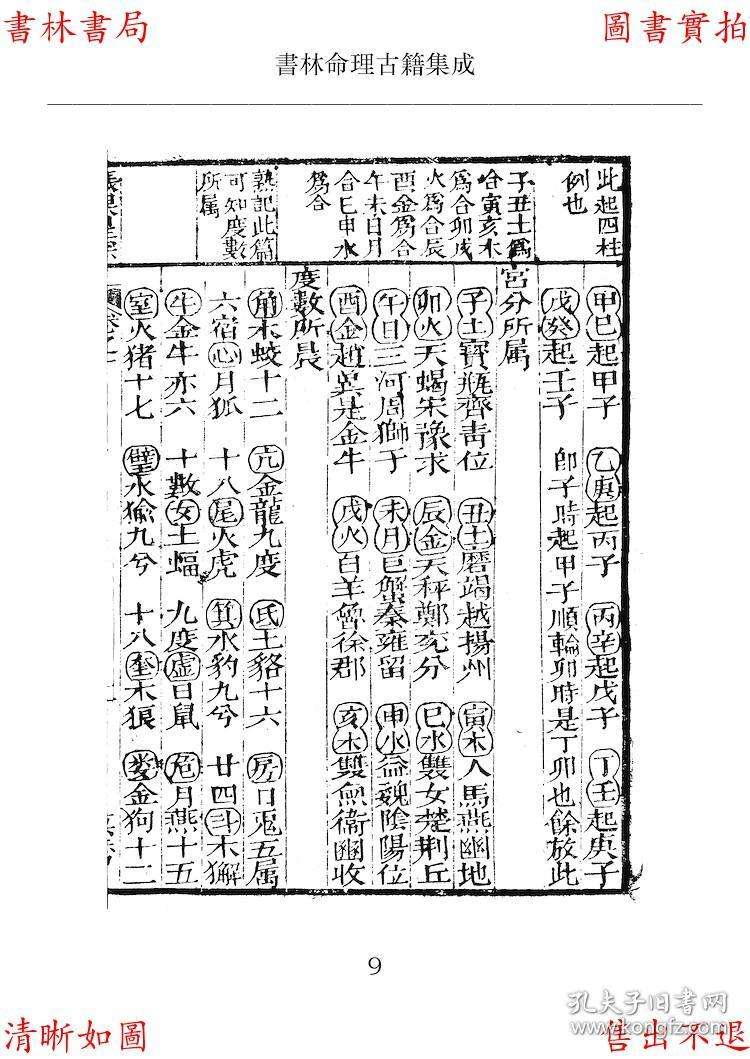 書林書局
圖書實拍
書林命理古籍集成
此起四柱
例也
子丑土爲
合寅亥木
爲合卯戌
火爲合辰
酉金爲合
午未日月
合巳申水
爲合
熟記此篇
可知度數
所属
甲巳起甲子 乙庚起丙子 丙辛起戊子 丁壬起庚子
戊癸起壬子 即子時起甲子順輪卯時是丁卯也餘放此
宮分所属
子土寶瓶齊青位 丑土磨竭越揚州 寅木人馬燕幽地
卯火天蝎宋豫求 辰金天秤鄭兖分 巳水雙女楚荆丘
午日三河周獅子 未月巨蟹秦雍留 申水益魏陰陽位
酉金趙冀是金牛 戌火白羊魯徐郡 亥木雙魚衞幽收
度數所
角木蛟十二 亢金龍九度 氐土貉十六 房日兎五属
六宿心月狐 十八尾火虎 箕水豹九兮 廿四斗木獬
牛金牛亦六 十數女土蝠 九度虚日鼠 危月燕十五
室火猪十七 壁水㺄九兮 十八奎木狼 婁金狗十二
9
清晰如圖
售出不退
孔夫子旧书网